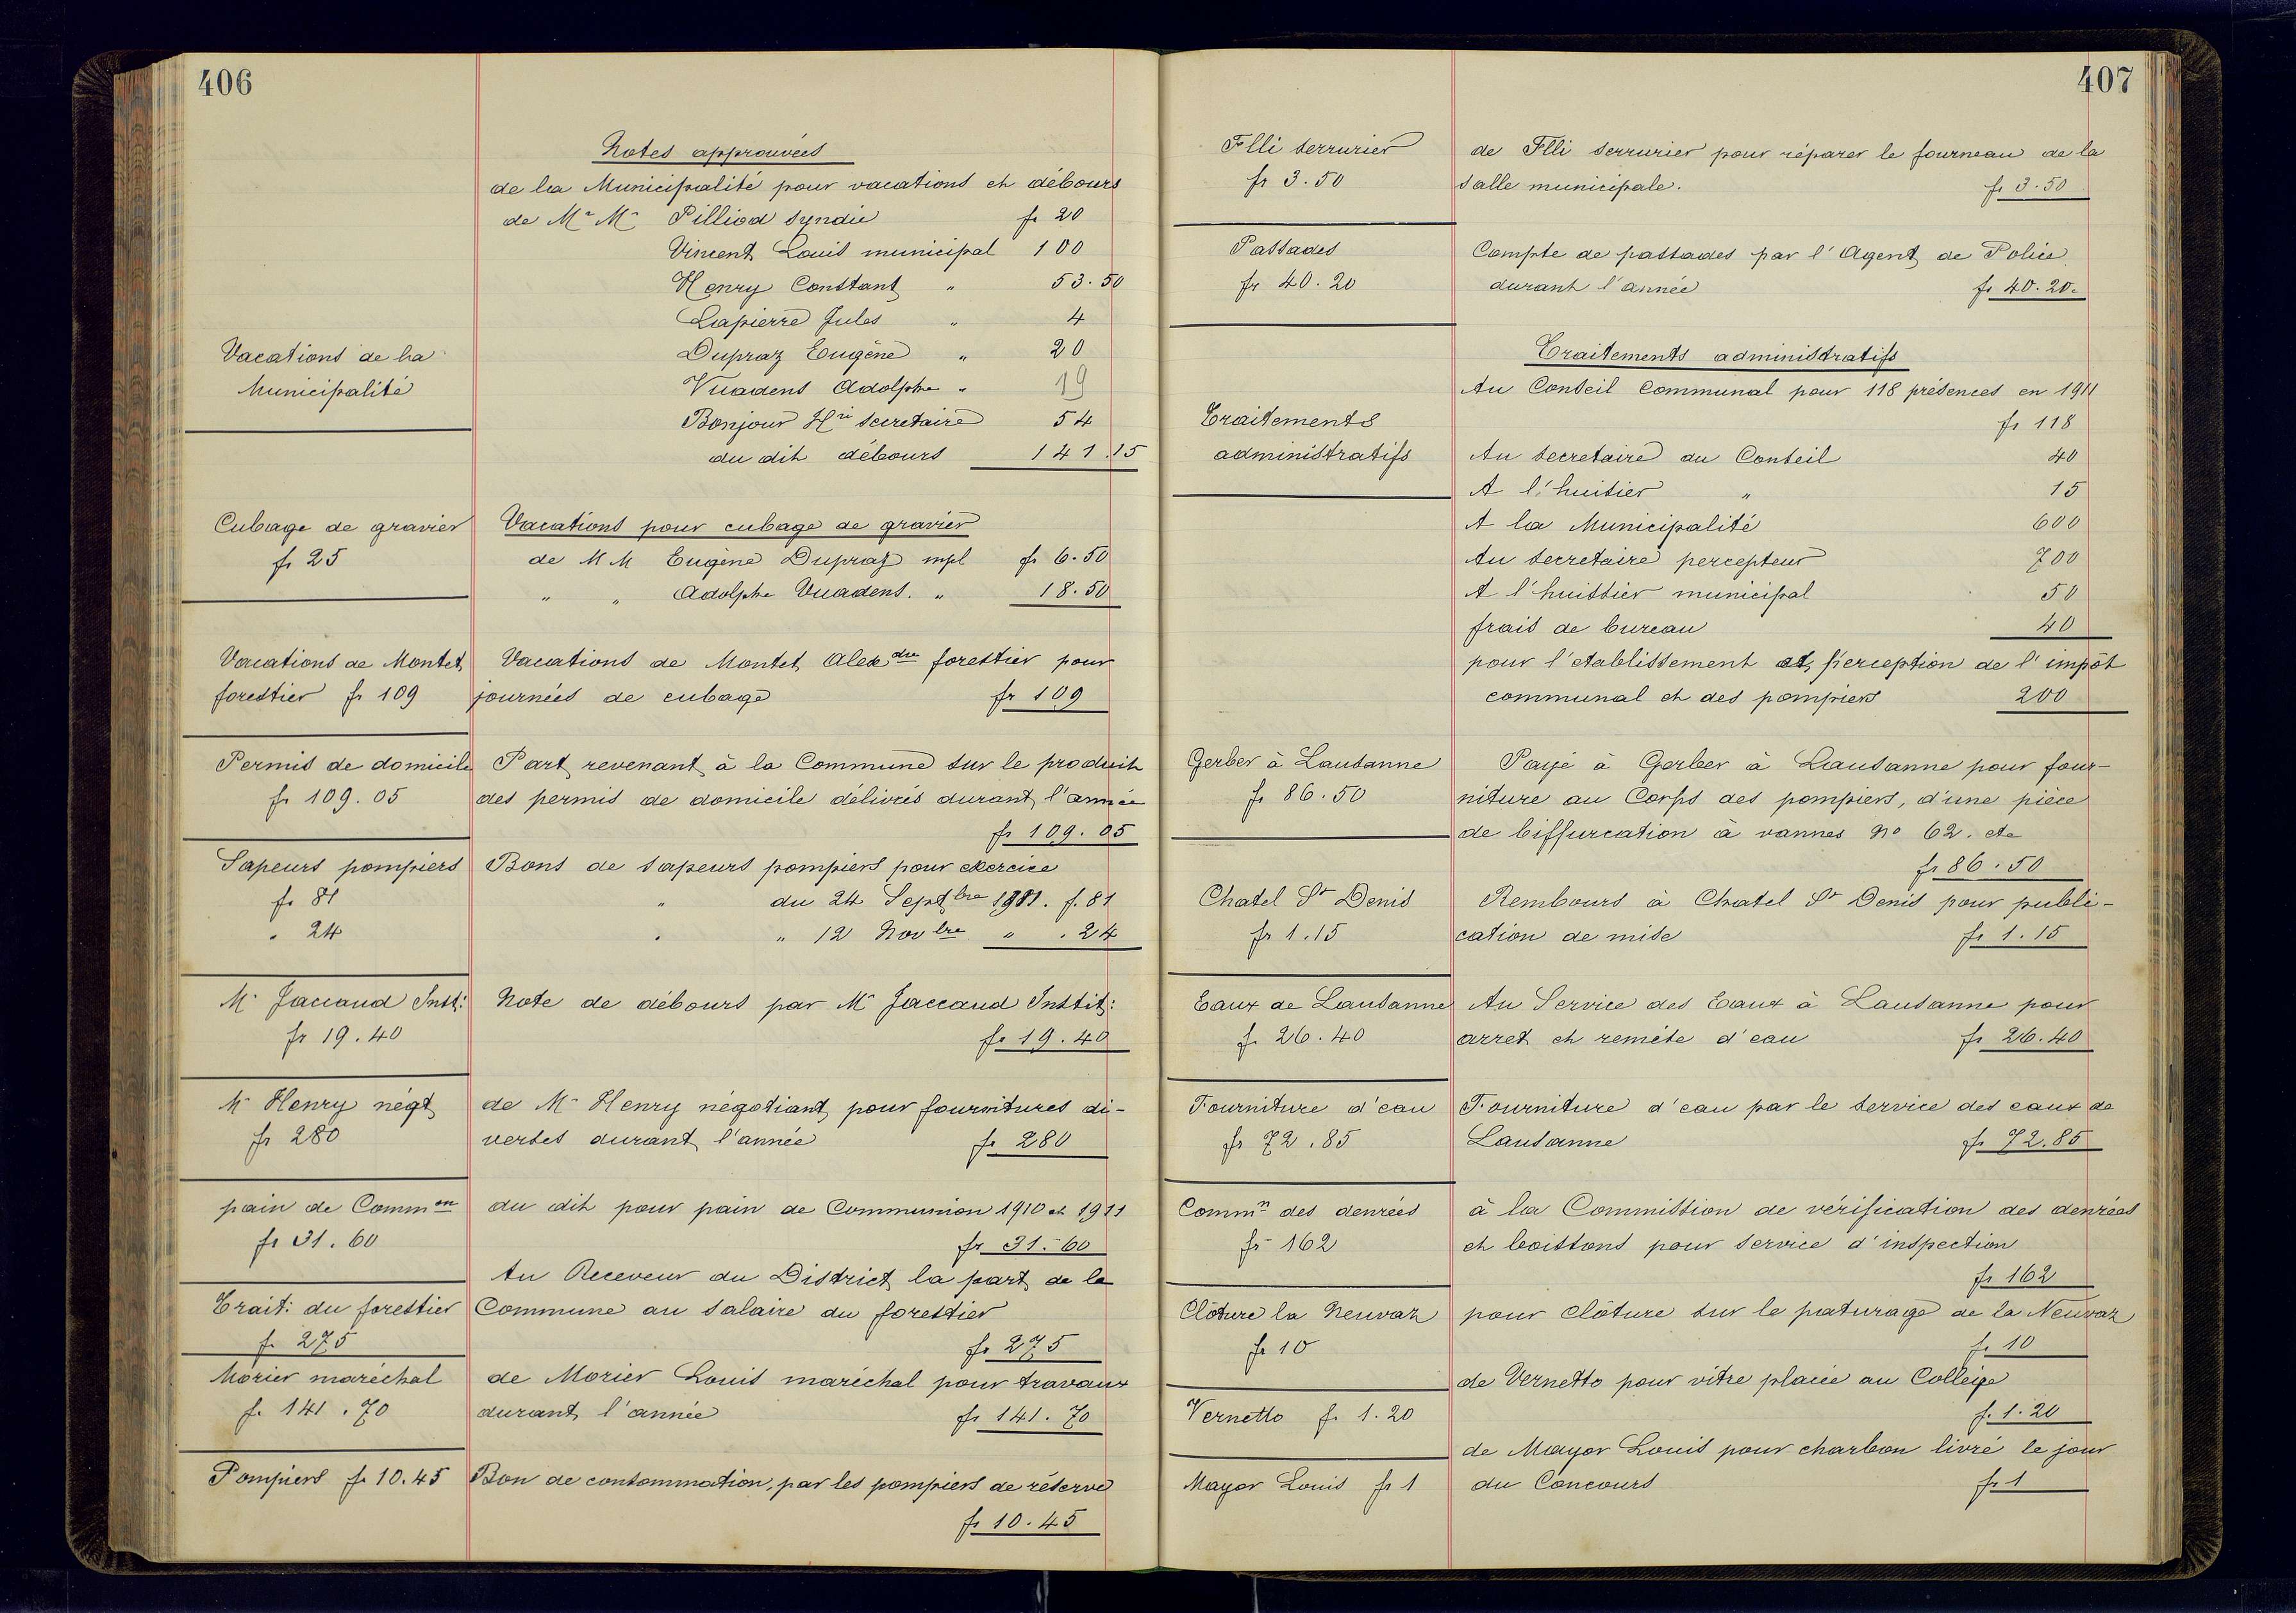 406
Notes approuvées
de la Municipalité pour vacations et débours
de Mr Mr Pilliod syndic fr 20
Vincent Louis municipal 100
Henry Constant " 53.50
Lapierre Jules " 4
Dupraz Eugène " 20
Vacations de la
Municipalité
Vuadens Adolphe " 19
Bonjour Hri secretaire 54
du dit débours 141.15
Cubage de gravier
fr 25
Vacations pour cubage de gravier
de MM Eugène Dupraz mpl fr 6.50
" " Adolphe Vuadens. " 18.50
Vacations de Montet
forestier fr 109
Vacations de Montet Alexdre forestier pour
journées de cubage fr 109
Permis de domicile
fr 109.05
Part revenant à la Commune sur le produit
des permis de domicile délivrés durant l'année
fr 109.05
Sapeurs pompiers
fr 81
" 24
Bons de sapeurs pompiers pour exercice
" du 24 Septbre 1911. f. 81
" " 12 Novbre " . 24
Mr Jaccaud Inst:
fr 19.40
Note de débours par Mr Jaccaud Instit:
fr 19.40
Mr Henry négt
fr 280
de Mr Henry négotiant pour fournitures di-
verses durant l'année fr 280
pain de Common
fr 31.60
du dit pour pain de Communion 1910 et 1911
fr 31.60
Trait: du forestier
fr 275
Au Receveur du District la part de la
Commune au salaire du forestier
fr 275
Morier maréchal
fr 141.70
de Morier Louis maréchal pour travaux
durant l'année fr 141.70
Pompiers fr 10.45
Bon de consommation, par les pompiers de réserve
fr 10.45
407
Flli serrurier
fr 3.50
de Flli serrurier pour réparer le fourneau de la
salle municipale. fr 3.50
Passades
fr 40.20
Compte de passades par l'Agent de Police
durant l'année fr 40.20.
Traitements
administratifs
Traitements administratifs
Au Conseil Communal pour 118 présences en 1911
fr 118
Au secretaire du Conseil 40
A l'huissier " 15
A la Municipalité 600
Au secretaire percepteur 700
A l'huissier municipal 50
frais de bureau 40
pour l'etablissement et perception de l'impôt
communal et des pompiers 200
Gerber à Lausanne
fr 86.50
Payé à Gerber à Lausanne pour four-
niture au Corps des pompiers, d'une pièce
de biffurcation à vannes No 62. etc
fr 86.50
Chatel St Denis
fr 1.15
Rembours à Chatel St Denis pour publi-
cation de mise fr 1.15
Eaux de Lausanne
fr 26.40
Au Service des Eaux à Lausanne pour
arret et remise d'eau fr 26.40
Fourniture d'eau
fr 72.85
Fourniture d'eau par le service des eaux de
Lausanne fr 72.85
Commn des denrées
fr 162
à la Commission de vérification des denrées
et boissons pour service d'inspection
fr 162
Clôture la Neuvaz
fr 10
pour clôture sur le paturage de la Neuvaz
fr 10
Vernetto fr 1.20
de Vernetto pour vitre placée au Collège
fr 1.20
Mayor Louis fr 1
de Mayor Louis pour charbon livré le jour
du Concours fr 1